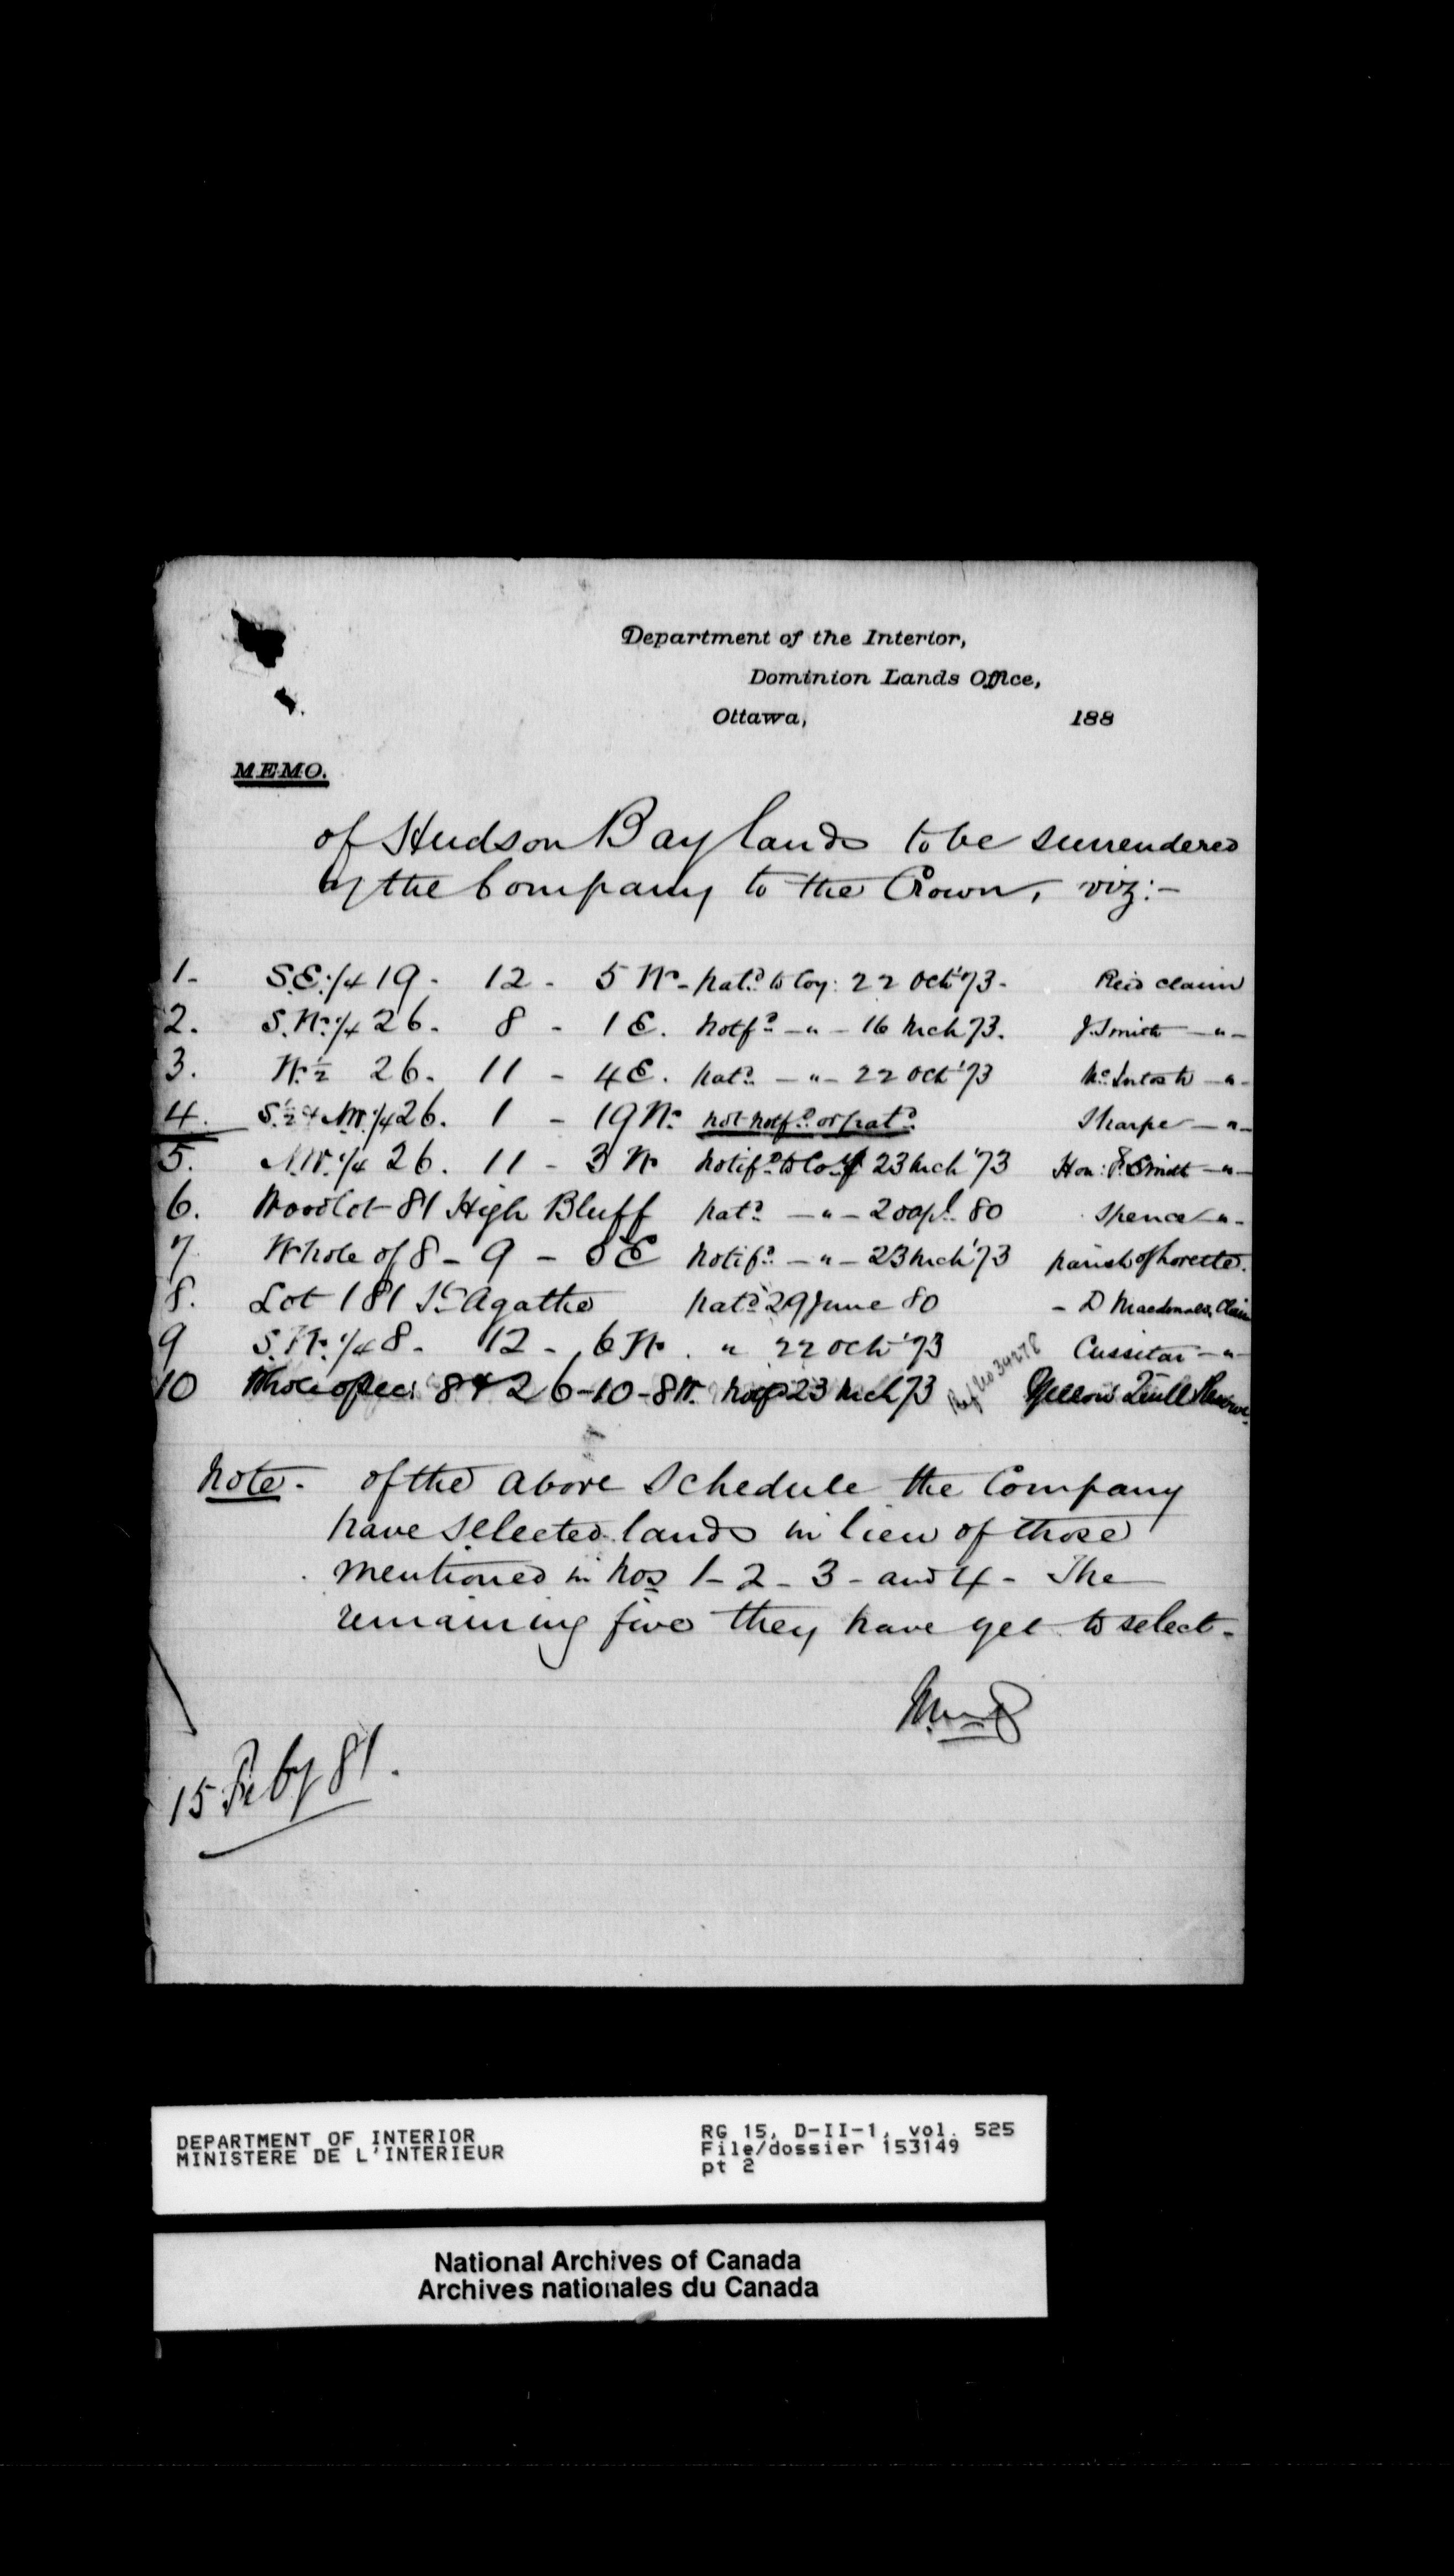 Department of the Interior,
Dominion Lands Office,
Ottawa, 188
MEMO.
of Hudson Bay lands to be surrendered
by the Company to the Crown, viz:-
1- S.E. 1/4 19 - 12 - 5 W - pat.d to Coy: 22 Oct '73 - Reid claim
2. S.W. 1/4 26 - 8 - 1 E. Notf.d - " - 16 Mch 73. J. Smith - " -
3. W. 1/2 26 - 11 - 4 E. pat.d - " - 22 Oct '73 McIntosh - " -
4. S. 1/2 & N.W. 1/4 26. 1 - 19 W. not notf.d or pat.d Sharpe - " -
5. N.W. 1/4 26. 11 - 3 W Notif.d to Coy 23 Mch '73 Hon: Smith - " -
6. Woodlot 81 High Bluff pat.d - " - 20 Apl. 80 Spence - " -
7 Whole of 8 - 9 - 5 E Notif.d - " - 23 Mch '73 parish of Lorette.
8. Lot 181 St Agathe pat.d 29 June 80 - D Macdonald, Claim
9 S.W. 1/4 8 - 12 - 6 W. " 22 Oct '73 Cussitar - " -
10 Whole of sec: 8 & 26 - 10 - 8 W. 23 Mch 73 Yellow Quill Reserve
Ref No 34278
Note. Of the above Schedule the Company
have selected lands in lieu of those
mentioned in Nos 1 - 2 - 3 - and 4 - The
remaining five they have yet to select -
15 Feby 81.
DEPARTMENT OF INTERIOR
MINISTERE DE L'INTERIEUR
RG 15, D-II-1, vol. 525
File/dossier 153149
pt 2
National Archives of Canada
Archives nationales du Canada